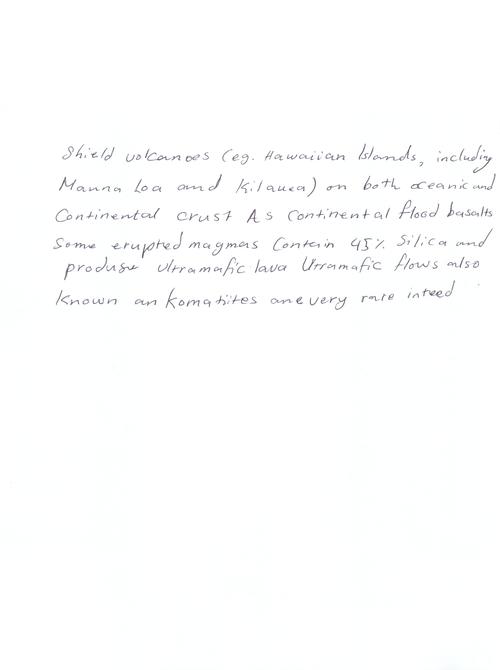 Shield volcanoes (eg. Hawaiian Islands, including
Manna Loa and Kilauea) on both oceanic and
Continental crust As Continental flood basalts
Some erupted magmas Contein 45% Silica and
produse ultramafic lava Urramafic flows also
Known an Komatiites are very rare inteed